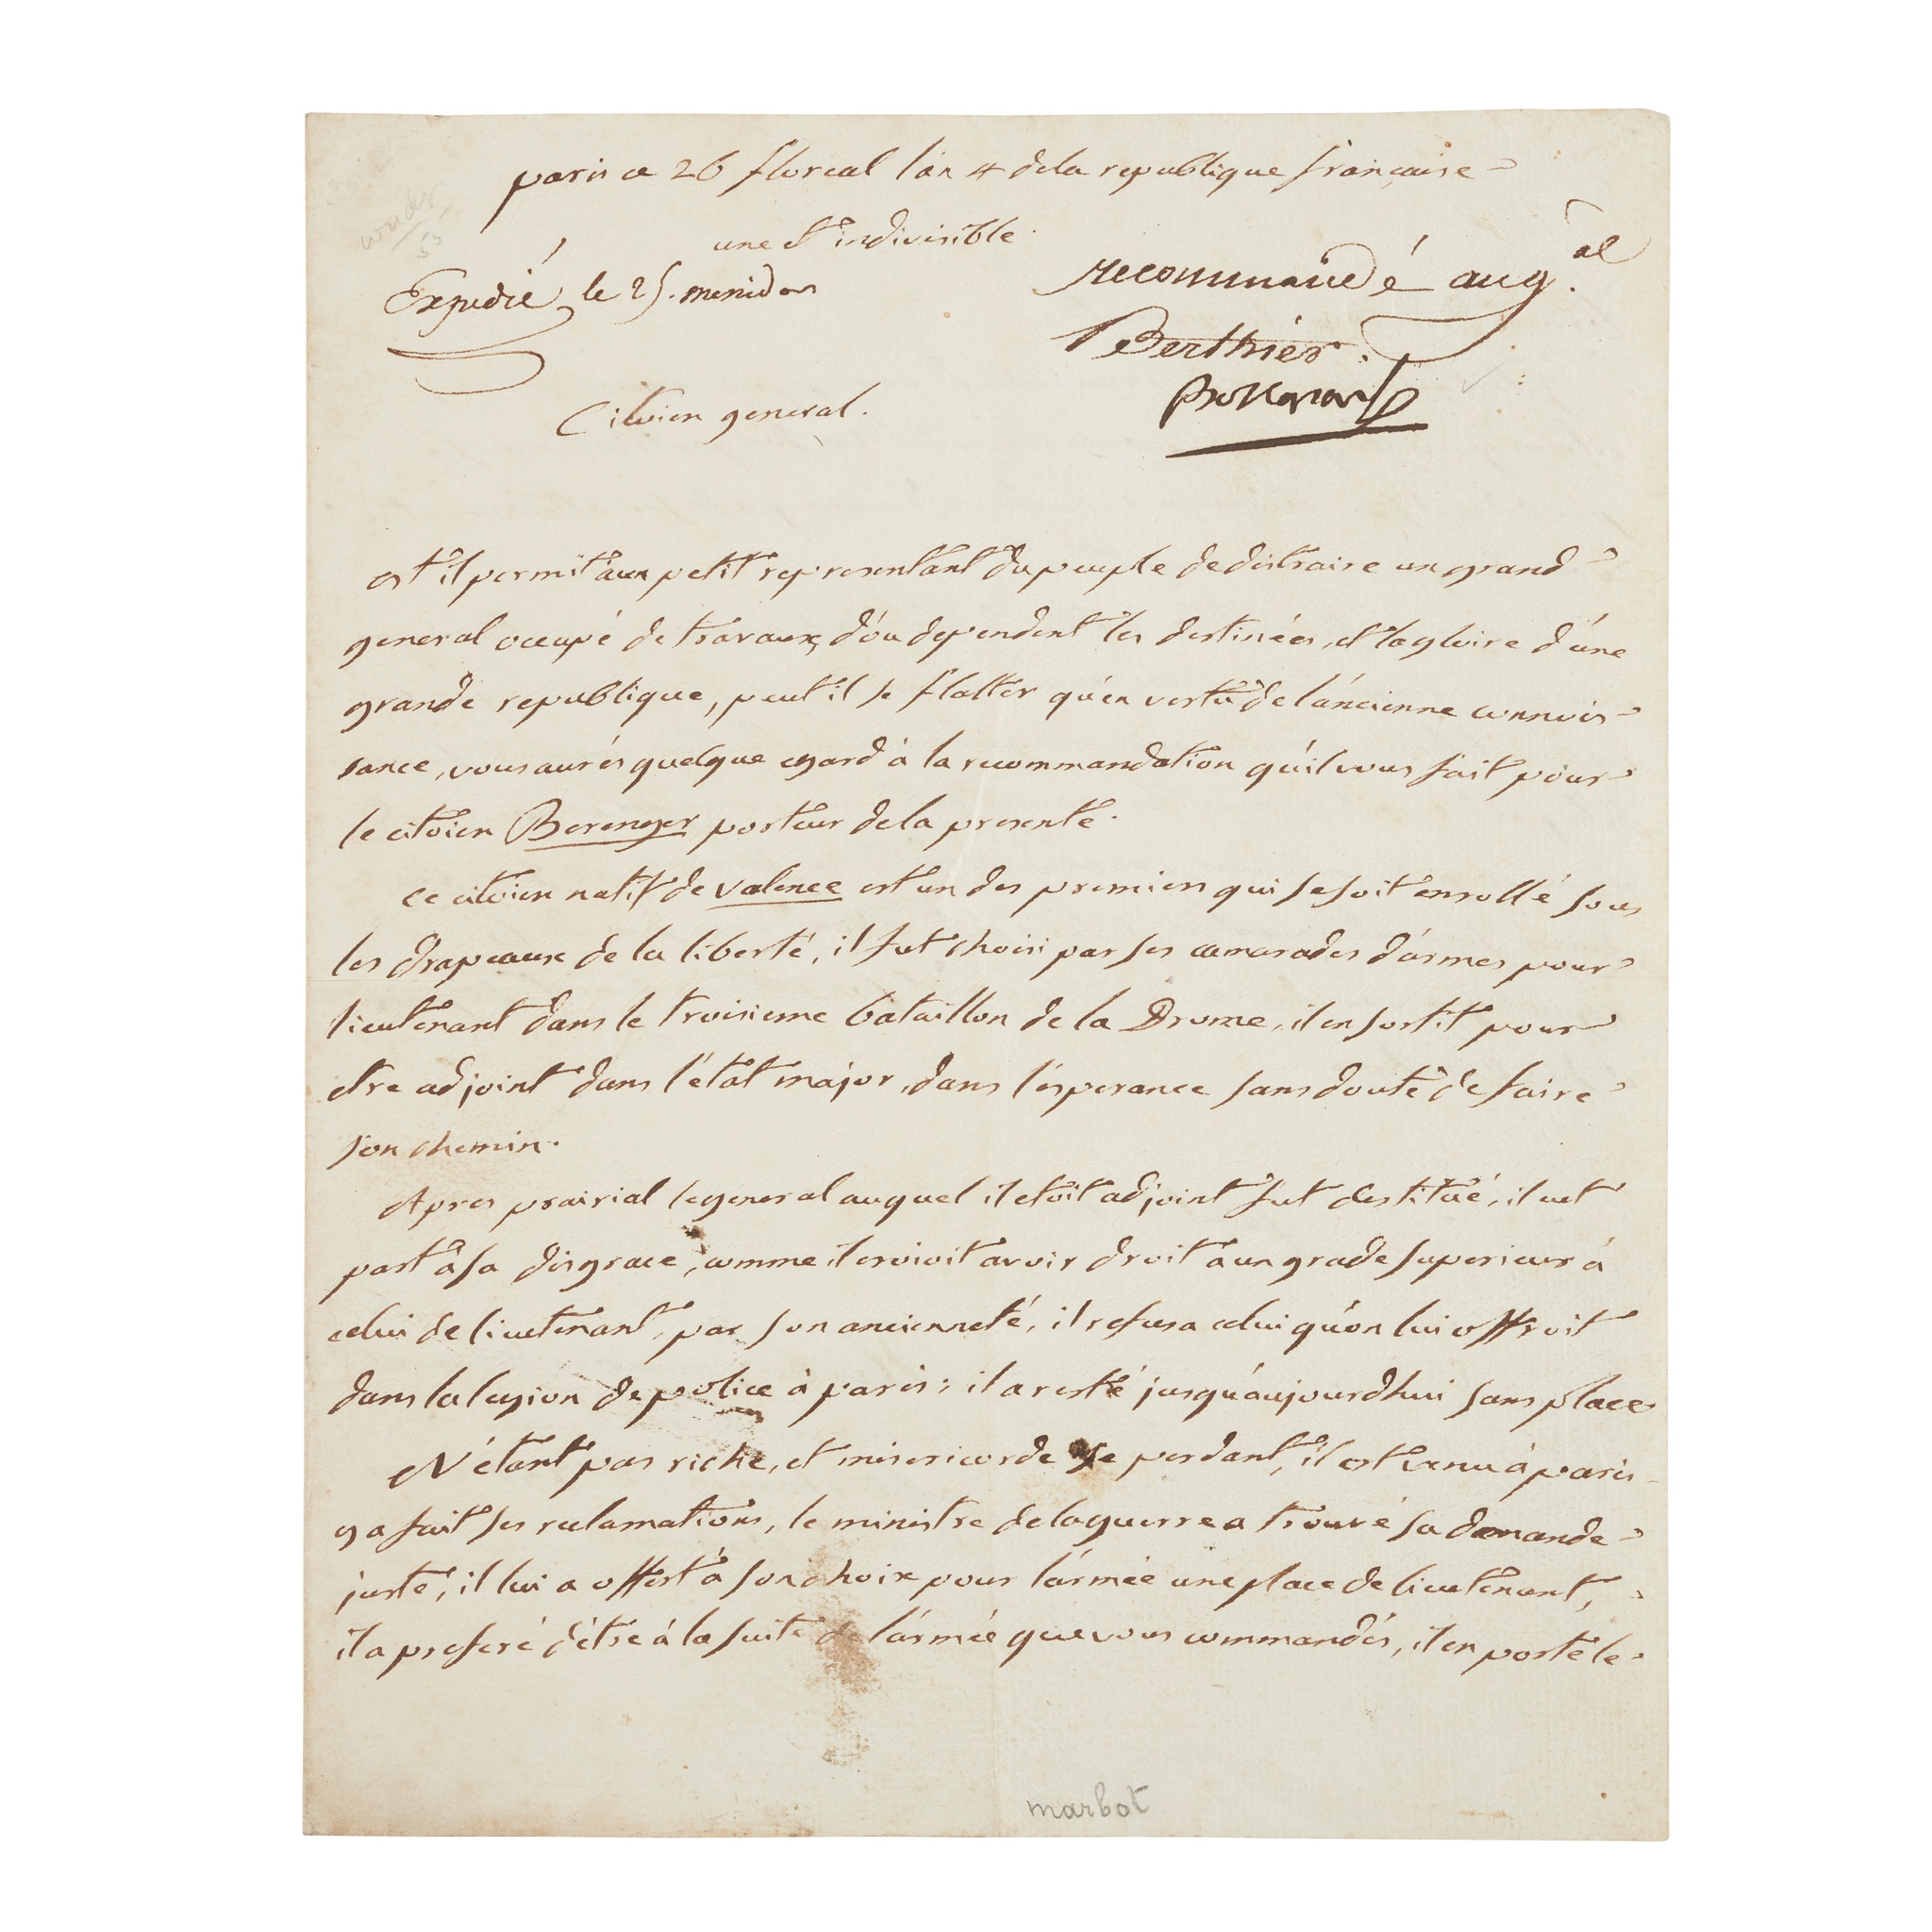 paris ce 26 floreal l'an 4 de la republique françaire
une et indivisible
Expedié le 25. mesidor
recommandé au g.al
Berthier.
Citoien general.
est il permit a un petit representant du peuple de distraire un grand
general occupé de travaux, d'ou dependent les destinées, et la gloire d'une
grande republique, peut il se flatter qu'en vertu de l'ancienne connois
sance, vous aurés quelque egard à la recommandation qu'il vous fait pour
le citoien Berenger porteur de la presente.
ce citoien natif de valence est un des premiers qui se soit enrollé sous
les drapeaux de la liberté, il fut choisi par ses camarades d'armes pour
lieutenant dans le troisieme bataillon de la Drome, il en sortit pour
etre adjoint dans l'etat major, dans l'esperance sans doute de faire
son chemin.
Apres prairial le general auquel il etoit adjoint fut destitué, il eut
part à sa disgrace, comme il croioit avoir droit à un grade superieur à
celui de lieutenant, par son ancienneté, il refusa celui qu'on lui offroit
dans la legion de police à paris; il a resté jusqu'aujourdhui sans place
N'étant pas riche, et misericorde se perdant, il est venu à paris
y a fait ses reclamations, le ministre de la guerre a trouvé sa demande
juste, il lui a offert à son choix pour l'armée une place de lieutenant,
il a preferé d'être à la suite de l'armée que vous commandés, il en porte le
marbot